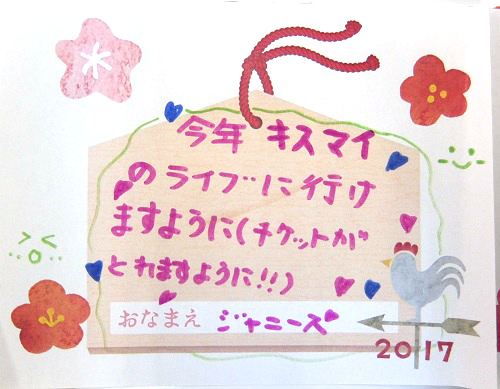 今年 キスマイ
のライブに行け
ますように(チケットが
とれますように!!)
おなまえ ジャニーズ
2017